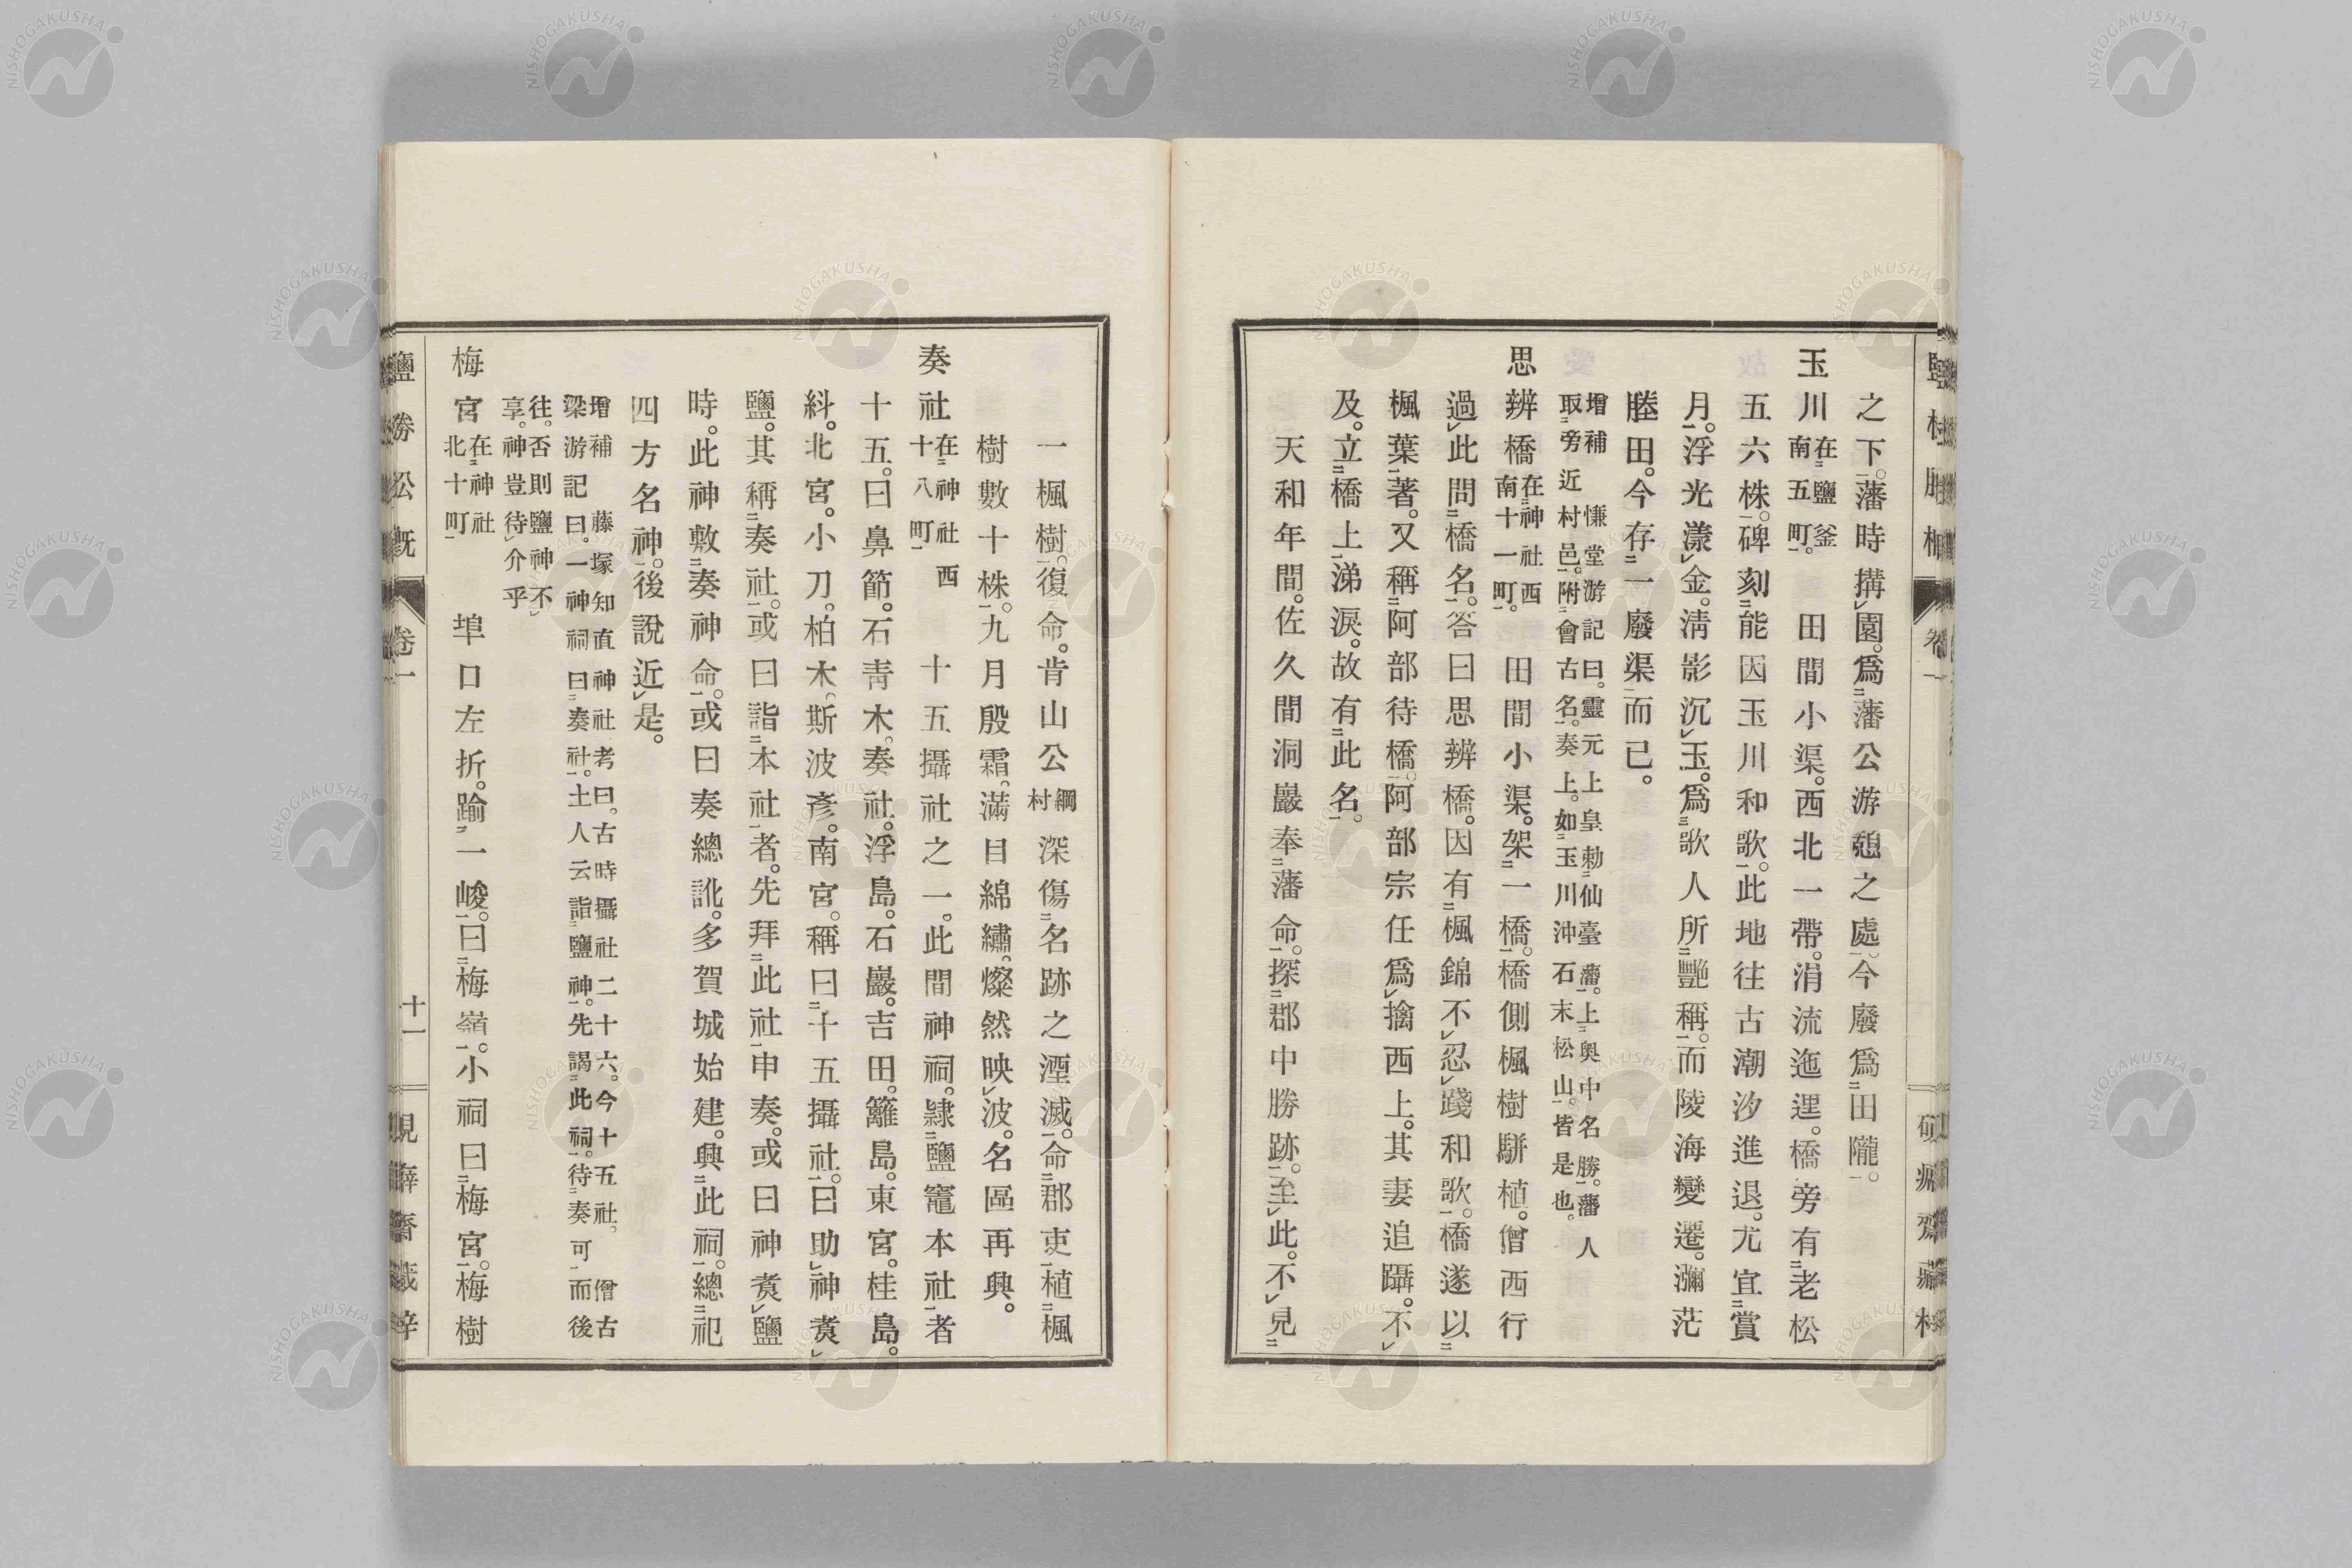 之下。藩時搆園。爲藩公游憩之處。今廢爲田隴。
玉川在鹽釜南五町。田間小渠。西北一帶。涓流迤逕。橋旁有老松
五六株。碑刻能因玉川和歌。此地往古潮汐進退。尤宜賞
月。浮光漾金。淸影沉玉。爲歌人所艷稱。而陵海變遷。瀰茫
陸田。今存一廢渠而已。
增補 慊堂游記曰。靈元上皇勅仙臺藩。上奧中名勝。藩人
取旁近村邑。附會古名。奏上。如玉川沖石末松山。皆是也。
思辨橋在神社西南十一町。田間小渠。架一橋。橋側楓樹駢植。僧西行
過此問橋名。答曰思辨橋。因有楓錦不忍踐和歌。橋遂以
楓葉著。又稱阿部待橋。阿部宗任爲擒西上。其妻追躡。不
及。立橋上涕淚。故有此名。
天和年間。佐久間洞巖奉藩命。探郡中勝跡。至此。不見
一楓樹。復命。肯山公綱村深傷名跡之湮滅。命郡吏植楓
樹數十株。九月殷霜。滿目綿繡。燦然映波。名區再興。
奏社在神社西十八町 十五攝社之一。此間神祠。隷鹽竈本社者
十五。曰鼻節。石靑木。奏社。浮島。石巖。吉田。籬島。東宮。桂島。
紏。北宮。小刀。柏木。斯波彥。南宮。稱曰十五攝社。曰助神䰞
鹽。其稱奏社。或曰詣本社者。先拜此社申奏。或曰神䰞鹽
時。此神敷奏神命。或曰奏總訛。多賀城始建。興此祠。總祀
四方名神。後說近是。
增補 藤塚知直神社考曰。古時攝社二十六。今十五社。僧古
梁游記曰。一神祠曰奏社。土人云詣鹽神。先謁此祠。待奏可而後
往。否則鹽神不
享。神豈待介乎
梅宮在神社北十町 埠口左折。踰一峻。曰梅嶺。小祠曰梅宮。梅樹
鹽勝松概 卷一 十一